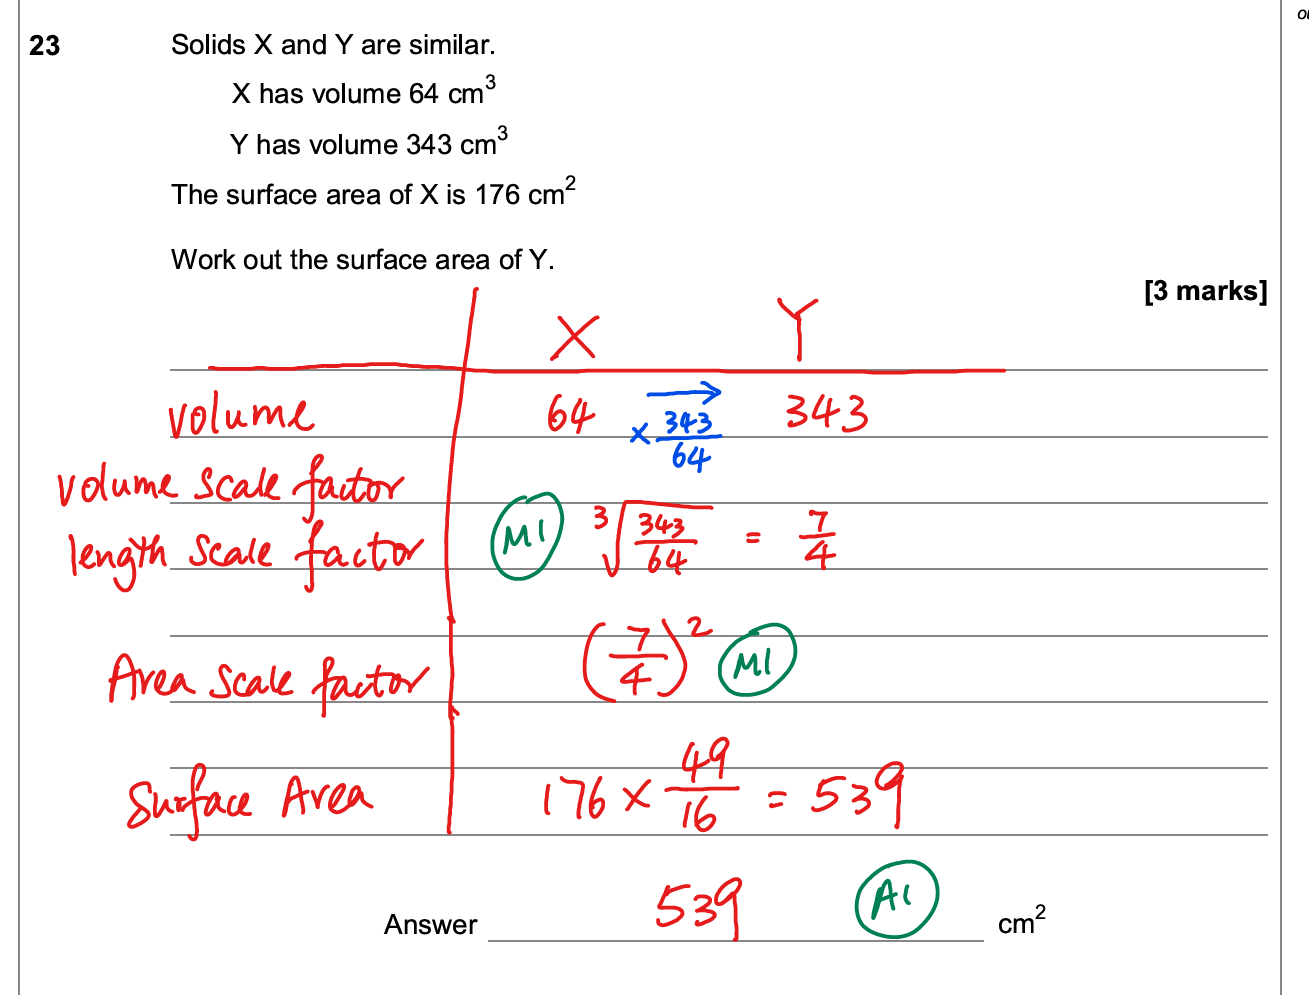 23 Solids X and Y are similar.
X has volume 64 cm³
Y has volume 343 cm³
The surface area of X is 176 cm²
Work out the surface area of Y.
[3 marks]
X Y
volume 64 × 343/64 → 343
volume scale factor
length scale factor M1 ∛(343/64) = 7/4
Area scale factor (7/4)² M1
Surface Area 176 × 49/16 = 539
Answer 539 A1 cm²